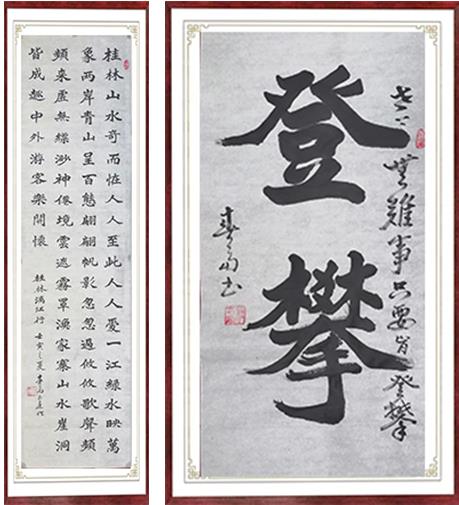 桂林山水奇而恠人人至此人人愛一江綠水映萬
象两岸青山呈百態翩翩帆影忽忽過攸攸歌聲頻
頻来虚無縹渺神僊境雲遮霧罩漁家寨山水崖洞
皆成趣中外游客樂開懷
桂林漓江行 壬寅之夏
世上無難事只要肯登攀
登攀